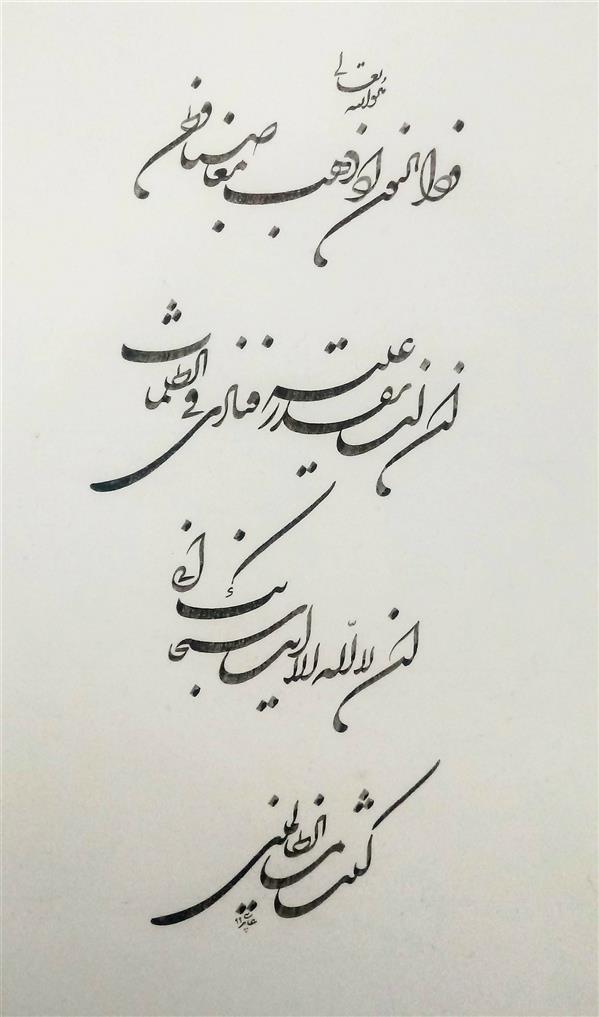 هو الله تعالی
و ذا النون اذ ذهب مغاضبا فظن
ان لن نقدر علیه فنادی فی الظلمات
ان لا اله الا انت سبحانک انی
کنت من الظالمین